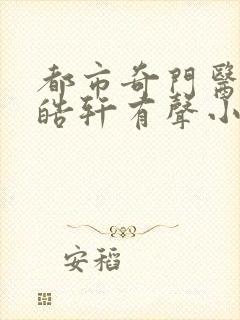 都市奇門醫
皓軒有聲小
安稻